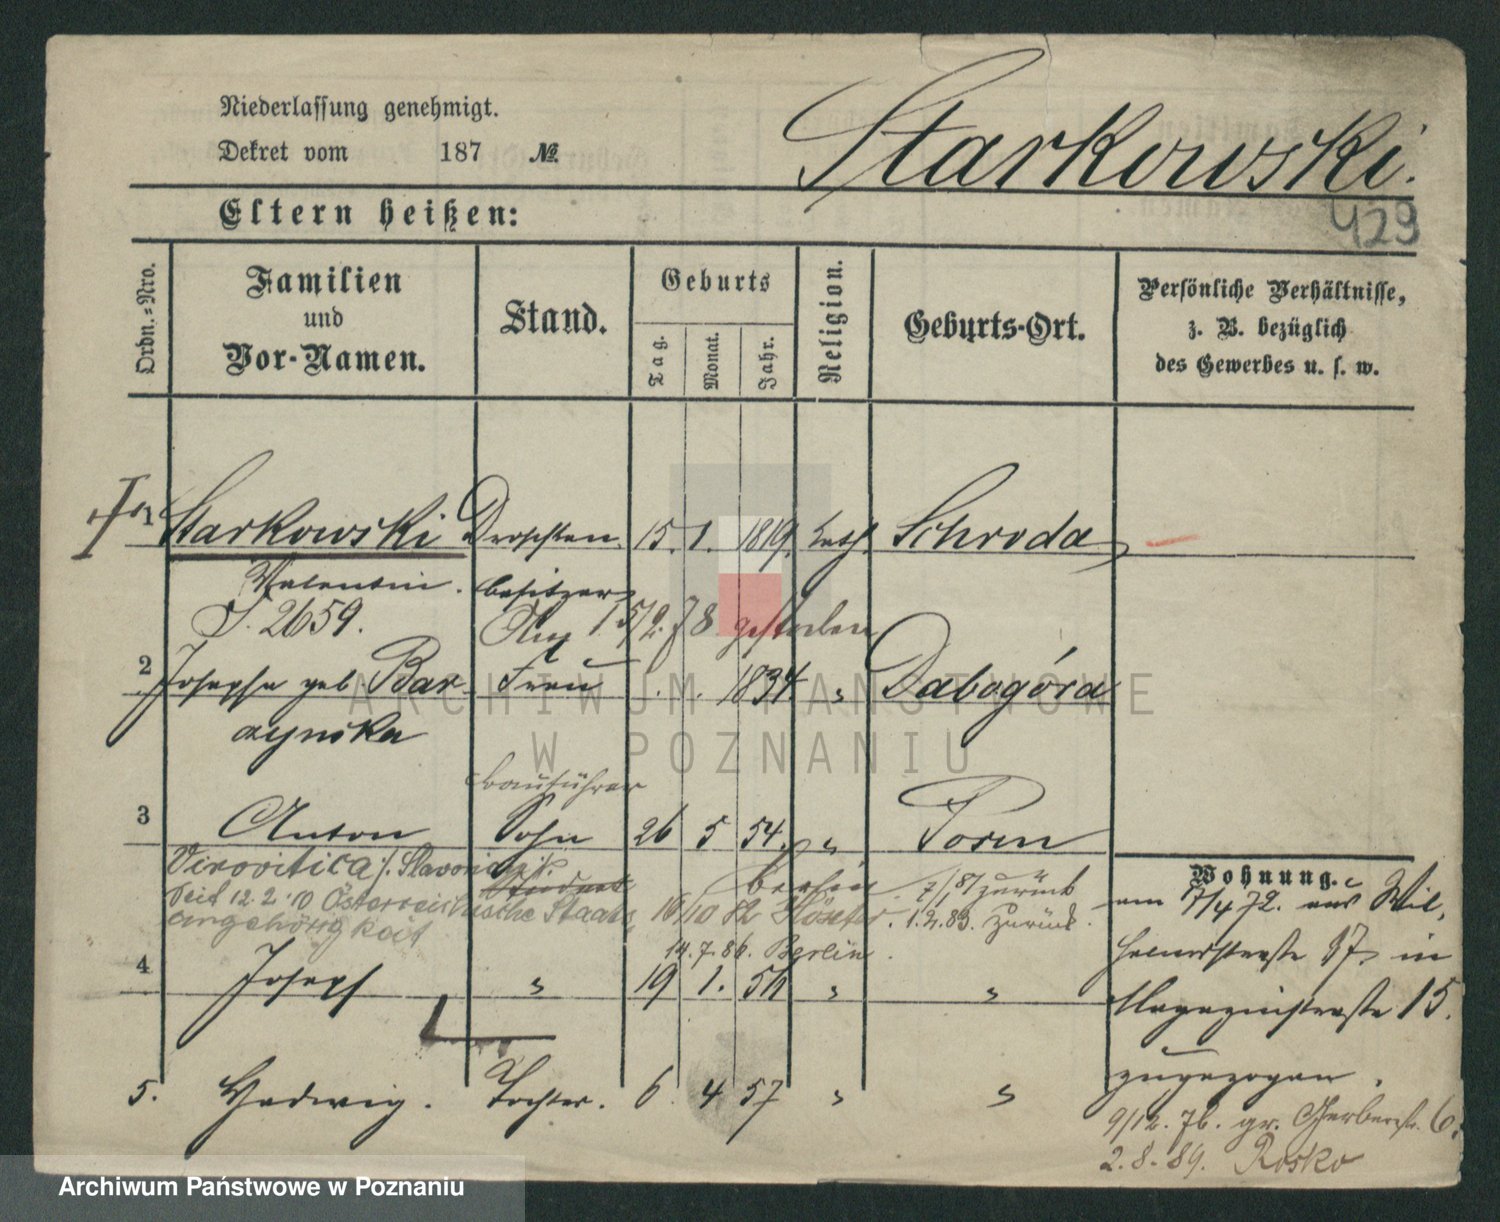 Niederlassung genehmigt.
Dekret vom 187 №
Starkowski.
429
Eltern heißen:
Ordn.-Nro.
Familien und Vor-Namen.
Stand.
Geburts
Tag.
Monat.
Jahr.
Religion.
Geburts-Ort.
Persönliche Verhältnisse,
z. B. bezüglich
des Gewerbes u. s. w.
1 Starkowski Droschken 15. 1. 1819. kath. Schroda
Valentin. besitzer
S. 2659. Am 15/2. 78 gestorben
2 Josepha geb. Bar Frau 1834. " Dabogóra
zynska
Bauführer
3 Anton Sohn 26 5 54. " Posen
Virovitica /. Slavonien Student Berlin 7/1 87 zurück
Seit 12.2.10 Österreichische Staats 16/10 82 1.2.83. zurück.
angehörigkeit
14.7.86. Berlin.
4 Joseph " 19 1. 56 " "
5. Hedwig. Tochter. 6. 4 57 " "
Wohnung.
am 7/4 72. aus Wil
helmstrasse 17 in
Magazinstrasse 15.
zugezogen.
9/12. 76. gr. Gerberstr. 6.
2.8.89. Rosko
ARCHIWUM PAŃSTWOWE
W POZNANIU
Archiwum Państwowe w Poznaniu